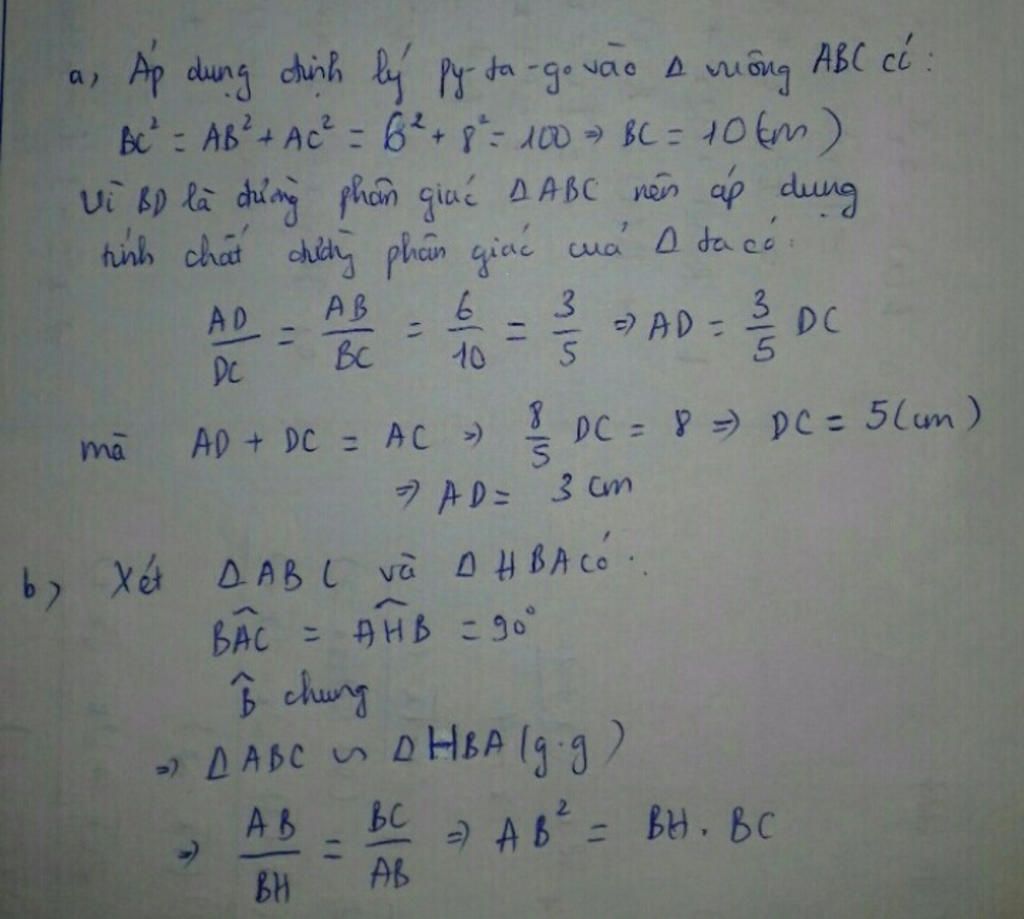 a, Áp dụng định lý py-ta-go vào Δ vuông ABC có:
BC² = AB² + AC² = 6² + 8² = 100 ⇒ BC = 10 (cm)
Vì BD là đường phân giác ΔABC nên áp dụng
tính chất đường phân giác của Δ ta có:
AD/DC = AB/BC = 6/10 = 3/5 ⇒ AD = 3/5 DC
mà AD + DC = AC ⇒ 8/5 DC = 8 ⇒ DC = 5 (cm)
⇒ AD = 3 cm
b, Xét ΔABC và ΔHBA có:
B̂AC = ÂHB = 90°
B̂ chung
⇒ ΔABC ∽ ΔHBA (g.g)
⇒ AB/BH = BC/AB ⇒ AB² = BH . BC